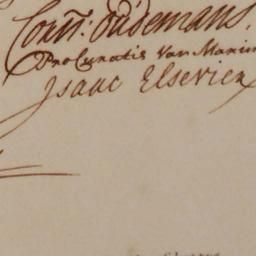 Corn: Oudemans
Procuratie Van Marin
Isaac Elsevier